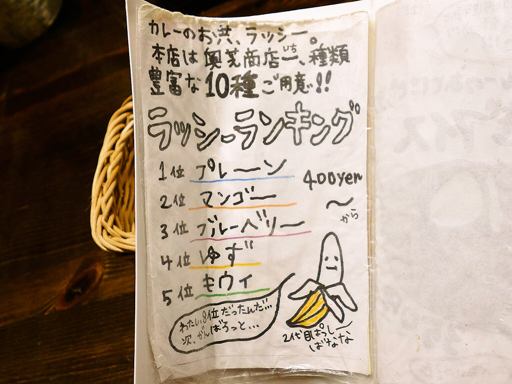 カレーのお共、ラッシー。
本店は奥芝商店一、種類
いち
豊富な10種ご用意!!
ラッシーランキング
1位 プレーン
400yen
〜
から
2位 マンゴー
3位 ブルーベリー
4位 ゆず
5位 キウイ
わたし、8位だったんだ…
次、がんばろっと…
2代目ぱっしー
ばなな